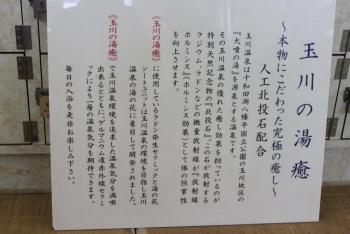 玉川の湯癒
～本物にこだわった究極の癒し～
人工北投石配合
玉川温泉は十和田湖八幡平国立公園の玉川地区の
『大噴の湯』を源泉とする温泉です。
その玉川温泉の優れた癒し効果を担っているのが
特別天然記念物の『北投石』。この石が放射する
ラジウム、ラドンなどの微量放射線が『放射線
ホルミシス』（ホルミシス効果）として体の恒常性
を向上させます。
《玉川の湯癒》
に使用しているラドン発生セラミックと湯の花
シートユニットは玉川温泉の環境を目指し玉川
温泉の湯の花に着目して開発されました。
《玉川の湯癒》
で玉川温泉環境を追求した温泉気分を満喫
出来るとともに、ゲルマニウム遠赤外線セラミ
ックにより一層の温泉気分を期待できます。
毎日の入浴を是非お楽しみ下さい。